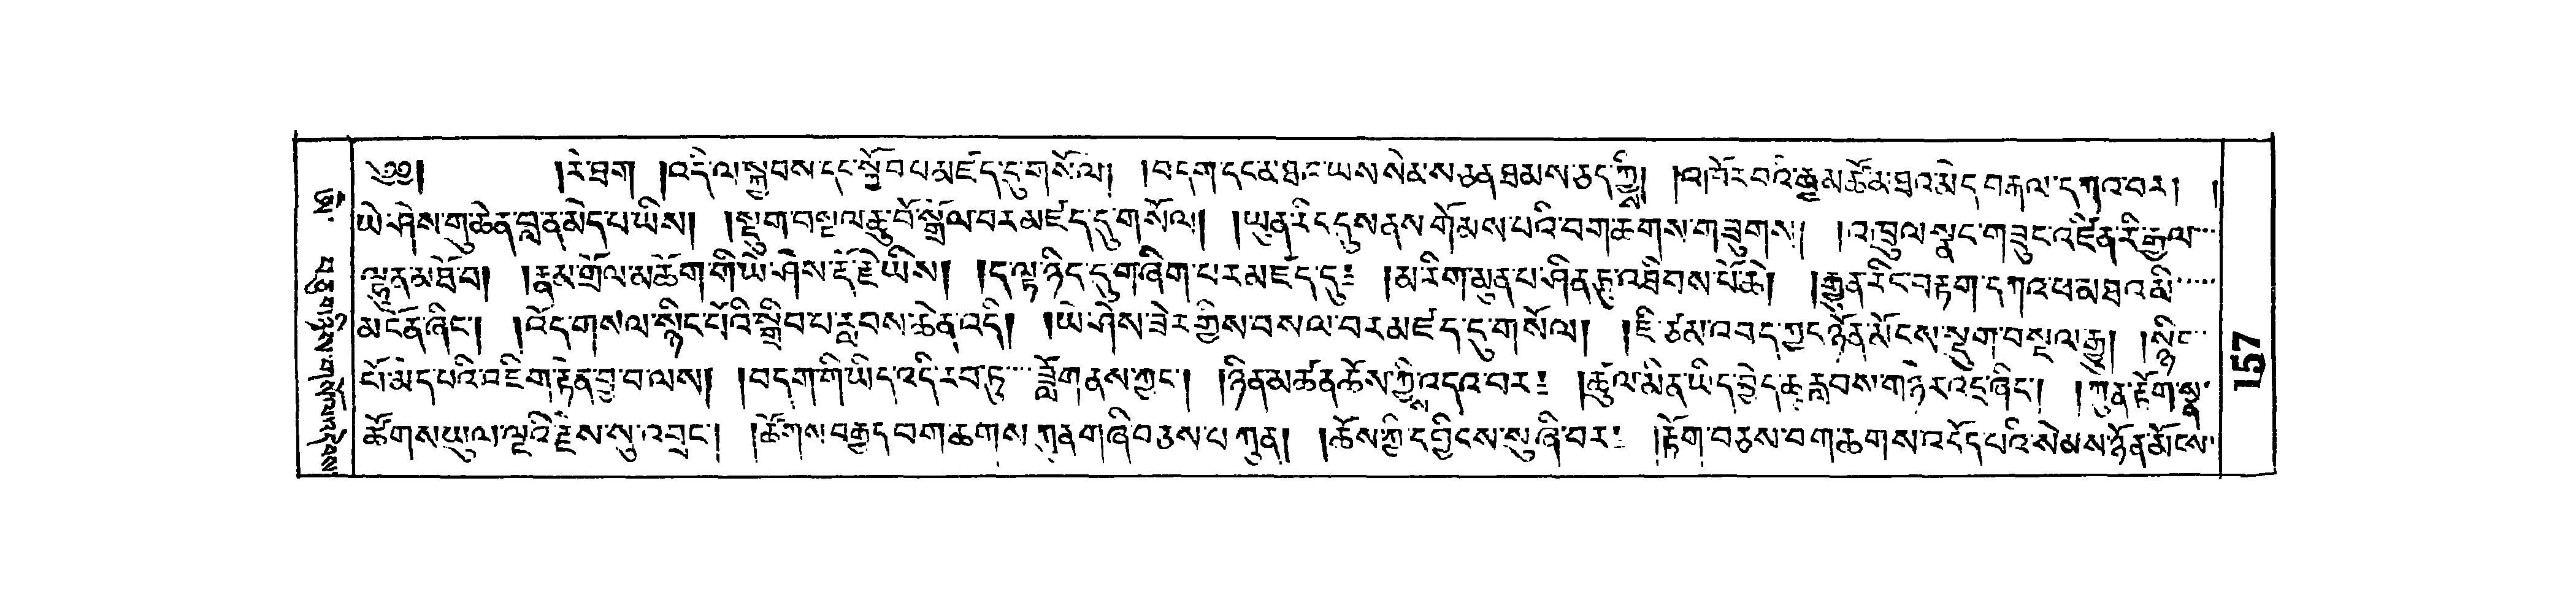 ༄༅། །རེ་ཐག །འདི་ལ་སྐྱབས་དང་སྐྱོབ་པ་མཛད་དུ་གསོལ། །བདག་དང་མཐའ་ཡས་སེམས་ཅན་ཐམས་ཅད་ཀྱི། །འཁོར་བའི་རྒྱ་མཚོ་མཐའ་མེད་བརྒལ་དཀའ་བར། །
ཡེ་ཤེས་གྲུ་ཆེན་བླ་ན་མེད་པ་ཡིས། །སྡུག་བསྔལ་ཆུ་བོ་སྒྲོལ་བར་མཛད་དུ་གསོལ། །ཡུན་རིང་དུས་ནས་གོམས་པའི་བག་ཆགས་གཟུགས། །འཁྲུལ་སྣང་གཟུང་འཛིན་རི་རྒྱལ་
ལྷུན་མཐོ་བ། །རྣམ་གྲོལ་མཆོག་གི་ཡེ་ཤེས་རྡོ་རྗེ་ཡིས། །ད་ལྟ་ཉིད་དུ་གཞིག་པར་མཛད་དུ༔ །མ་རིག་མུན་པ་ཤིན་ཏུ་འཐིབས་པོ་ཆེ། །རྒྱུན་རིང་བརྟག་དཀའ་ཕ་མཐའ་མི་
མངོན་ཞིང་། །འོད་གསལ་སྙིང་པོའི་སྒྲིབ་པ་རླབས་ཆེན་འདི། །ཡེ་ཤེས་ཟེར་གྱིས་བསལ་བར་མཛད་དུ་གསོལ། །ཇི་ཙམ་འབད་ཀྱང་ཉོན་མོངས་སྡུག་བསྔལ་རྒྱུ། །སྙིང་
པོ་མེད་པའི་འཇིག་རྟེན་བྱ་བ་ལས། །བདག་གི་ཡིད་འདི་རབ་ཏུ་ཟློག་ནས་ཀྱང་། །ཉིན་མཚན་ཆོས་ཀྱི་འདའ་བར༔ །ཚུལ་མིན་ཡིད་བྱེད་ཆུ་རླབས་གཉེར་འདྲ་ཞིང་། །ཀུན་རྟོག་སྣ་
ཚོགས་ཡུལ་ལྔའི་རྗེས་སུ་འབྲང་། །ཚོགས་བརྒྱད་བག་ཆགས་ཀུན་གཞི་བཅས་པ་ཀུན། །ཆོས་ཀྱི་དབྱིངས་སུ་ཞི་བར༔ །རྟོག་བཅས་བག་ཆགས་འདོད་པའི་སེམས་ཉོན་མོངས་
157